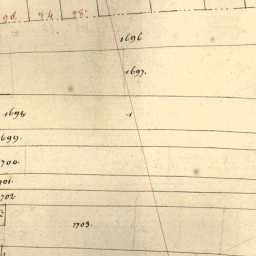 98.
1696
1697.
1698
1699.
1700.
1701.
1702
1703.